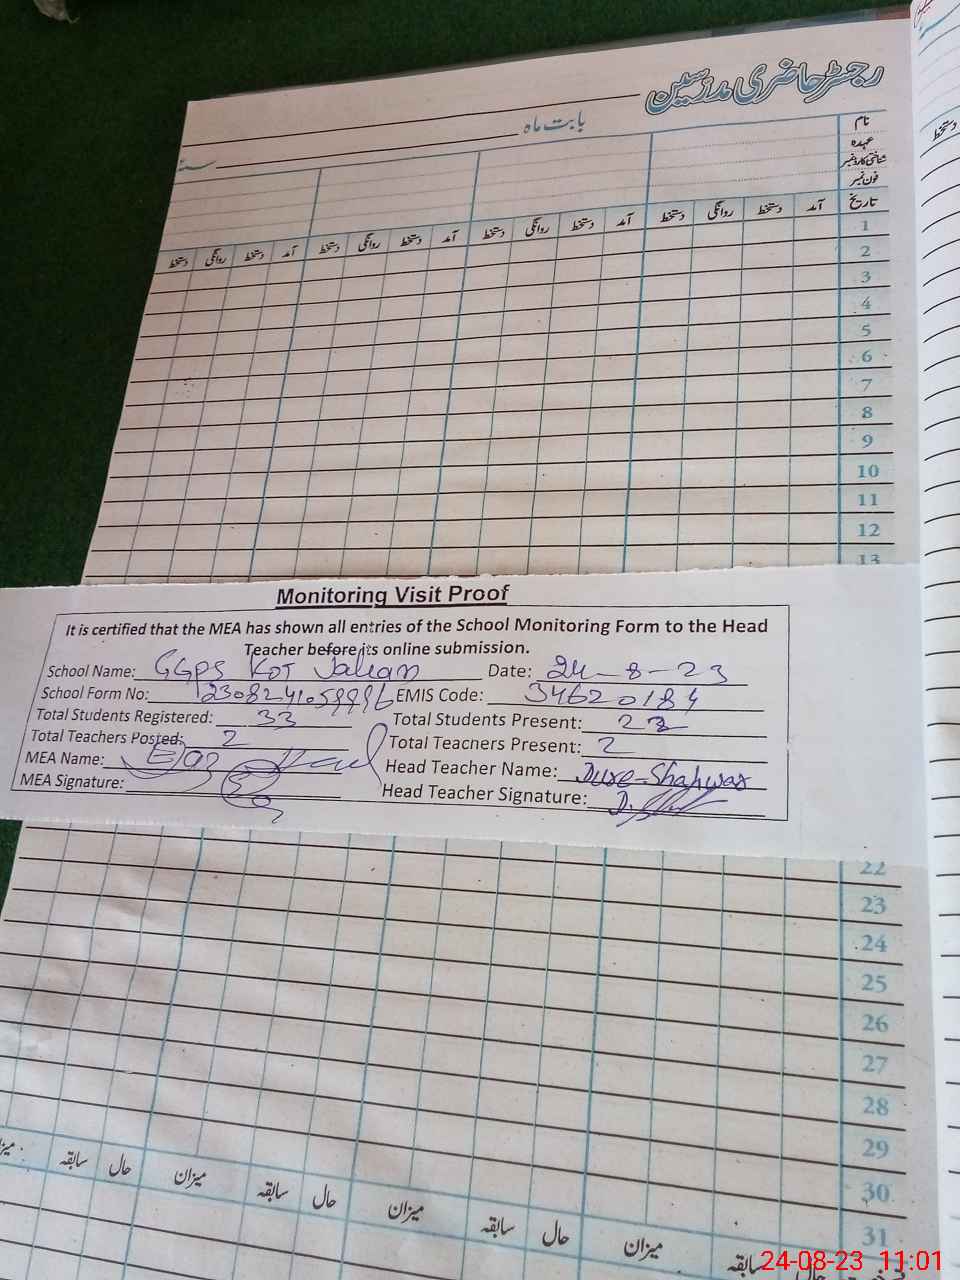 رجسٹر حاضری مدرسین
بابت ماہ
سنہ
نام
عہدہ
شناختی کارڈ نمبر
فون نمبر
تاریخ آمد دستخط روانگی دستخط آمد دستخط روانگی دستخط آمد دستخط روانگی دستخط آمد دستخط روانگی دستخط
دستخط
1
2
3
4
5
6
7
8
9
10
11
12
13
Monitoring Visit Proof
It is certified that the MEA has shown all entries of the School Monitoring Form to the Head
Teacher before its online submission.
School Name: GGPS Kot Date: 24-8-23
School Form No: EMIS Code: 34620184
Total Students Registered: 33 Total Students Present:
Total Teachers Posted: 2 Total Teacners Present: 2
MEA Name: Head Teacher Name: Dure-Shahwar
MEA Signature: Head Teacher Signature:
22
23
24
25
26
27
28
29
30
31
میزان حال سابقہ میزان حال سابقہ میزان حال سابقہ
حال سابقہ
24-08-23 11:01